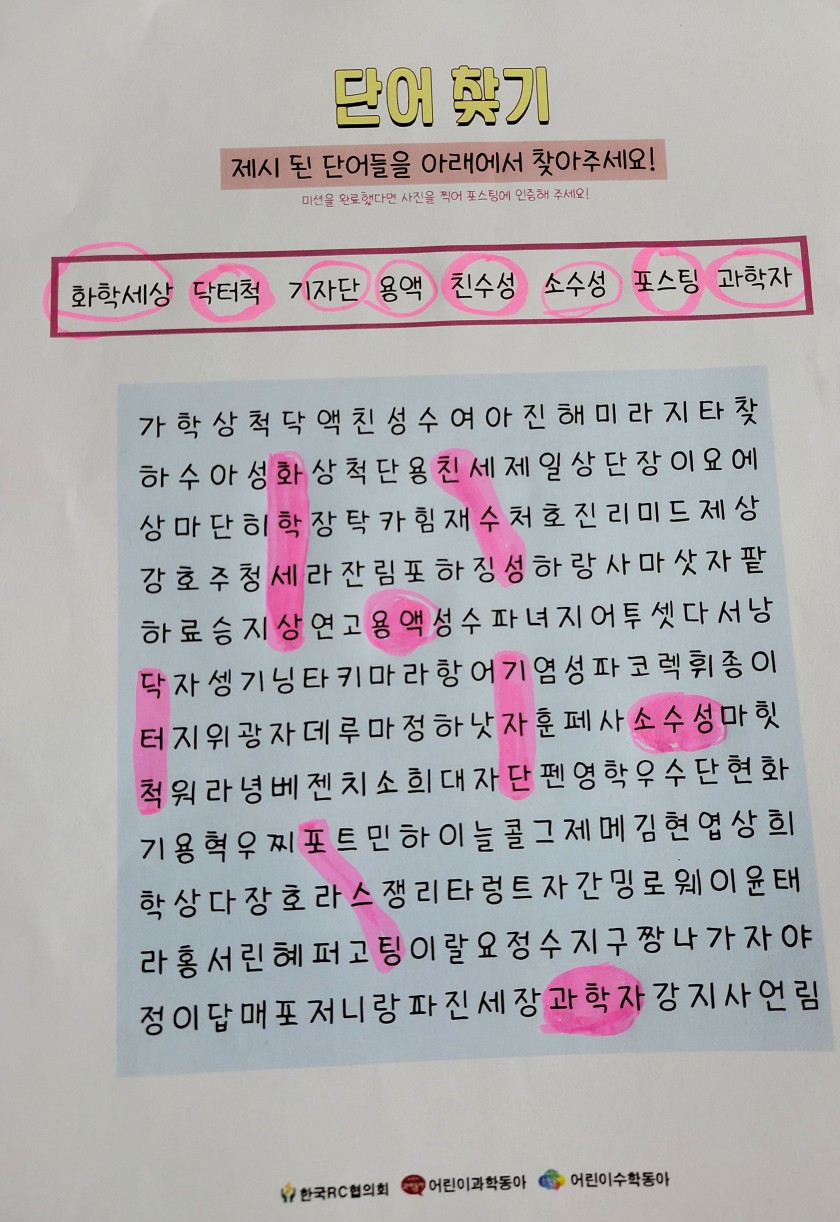 단어 찾기
제시 된 단어들을 아래에서 찾아주세요!
미션을 완료했다면 사진을 찍어 포스팅에 인증해 주세요!
화학세상 닥터척 기자단 용액 친수성 소수성 포스팅 과학자
가 학 상 척 닥 액 친 성 수 여 아 진 해 미 라 지 타 찾
하 수 아 성 화 상 척 단 용 친 세 제 일 상 단 장 이 요 에
상 마 단 히 학 장 탁 카 힘 재 수 처 호 진 리 미 드 제 상
강 호 주 청 세 라 잔 림 포 하 징 성 하 랑 사 마 삿 자 팥
하 료 승 지 상 연 고 용 액 성 수 파 녀 지 어 투 셋 다 서 낭
닥 자 셍 기 닝 타 키 마 라 항 어 기 염 성 파 코 렉 휘 종 이
터 지 위 광 자 데 루 마 정 하 낫 자 훈 페 사 소 수 성 마 힛
척 워 라 녕 베 젠 치 소 희 대 자 단 펜 영 학 우 수 단 현 화
기 용 혁 우 찌 포 트 민 하 이 늘 콜 그 제 메 김 현 엽 상 희
학 상 다 장 호 라 스 쟁 리 타 렁 트 자 간 밍 로 웨 이 윤 태
라 홍 서 린 혜 퍼 고 팅 이 랄 요 정 수 지 구 짱 나 가 자 야
정 이 답 매 포 저 니 랑 파 진 세 장 과 학 자 강 지 사 언 림
한국RC협의회 어린이과학동아 어린이수학동아